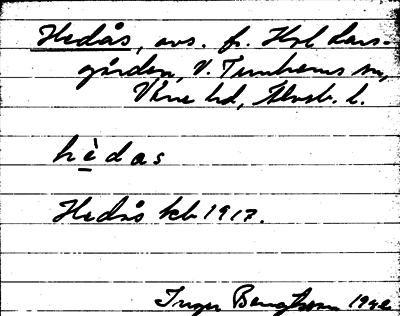 Hedås, avs. fr. Hol Lars-
gården, V. Tunhems sn,
Väne hd, Älvsb. l.
hèdas
Hedås kb 1917.
Inger Bengtsson 1942